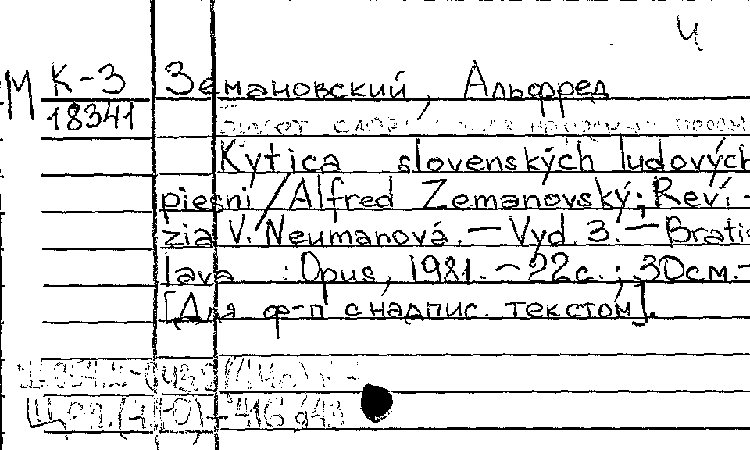 Ч
М К-3 Земановский, Альфред
18341
Kytica slovenských ľudových
piesni / Alfred Zemanovský; Reví-
zia V. Neumanová. — Vyd. 3. — Bratis
lava : Opus, 1981. — 22с. ; 30см. —
[Для ф-п с надпис. текстом].